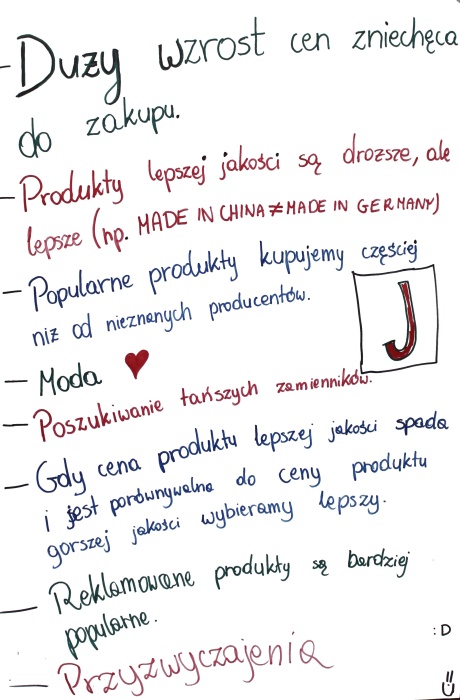 - Duży wzrost cen zniechęca
do zakupu.
- Produkty lepszej jakości są droższe, ale
lepsze (np. MADE IN CHINA ≠ MADE IN GERMANY)
- Popularne produkty kupujemy częściej
niż od nieznanych producentów.
J
- Moda ♥
- Poszukiwanie tańszych zamienników.
- Gdy cena produktu lepszej jakości spada
i jest porównywalna do ceny produktu
gorszej jakości wybieramy lepszy.
- Reklamowane produkty są bardziej
popularne.
:D
- Przyzwyczajenia